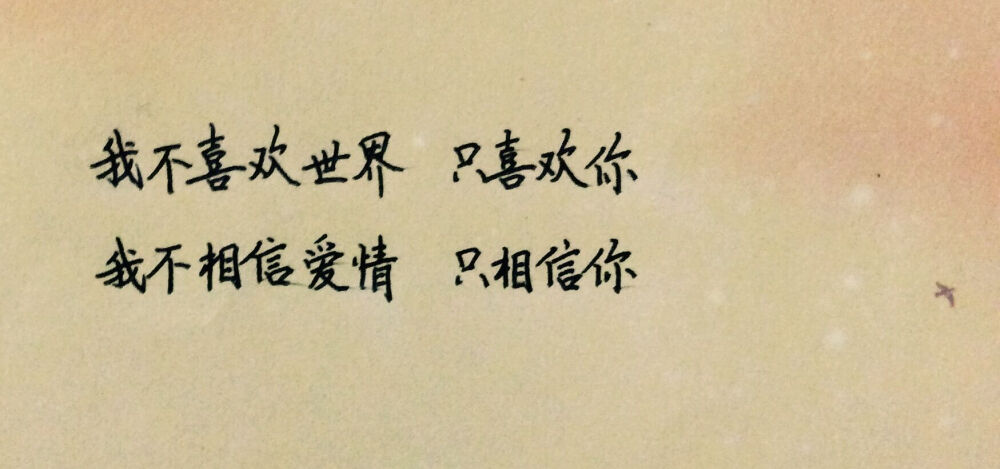 我不喜欢世界 只喜欢你
我不相信爱情 只相信你